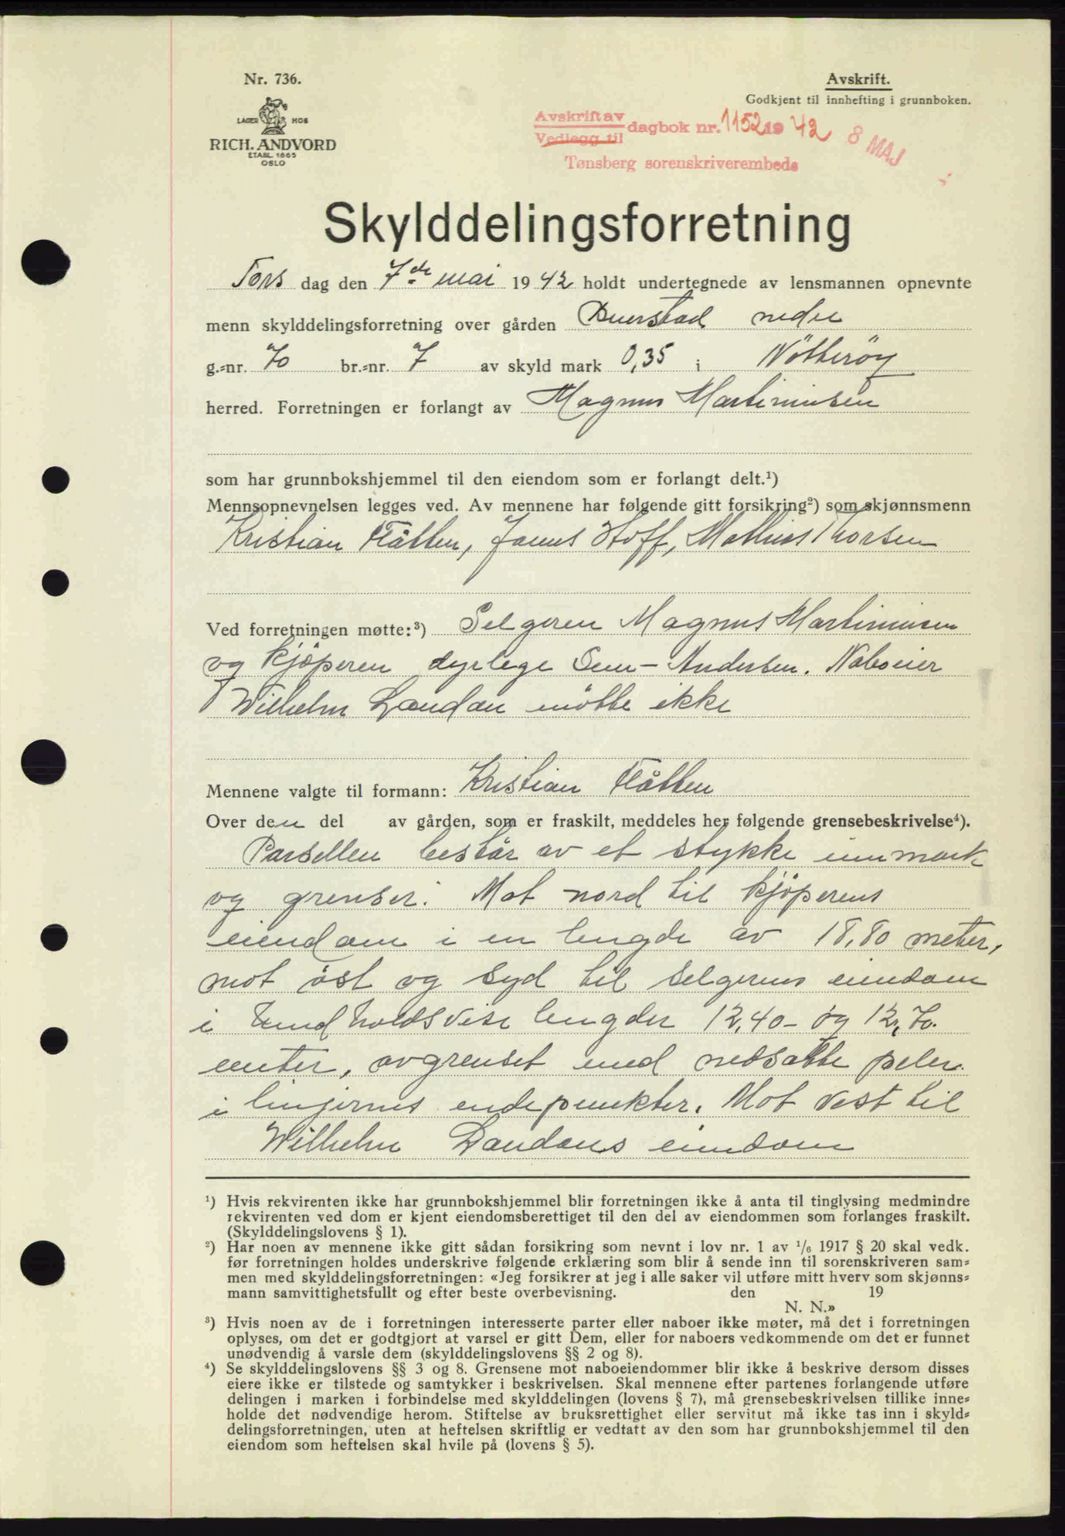 Nr. 736.
LAGER HOS
RICH. ANDVORD
ETABL. 1865
OSLO
Avskrift.
Godkjent til innhefting i grunnboken.
Avskrift av
Vedlegg til
dagbok nr. 1152 1942 8 MAJ
Tønsberg sorenskriverembede
Skylddelingsforretning
Tors dag den 7de mai 1942 holdt undertegnede av lensmannen opnevnte
menn skylddelingsforretning over gården Duerstad nedre
g.=nr. 70 br.=nr. 7 av skyld mark 0,35 i Nötteröy
herred. Forretningen er forlangt av Magnus Martiniusen
som har grunnbokshjemmel til den eiendom som er forlangt delt.¹)
Mennsopnevnelsen legges ved. Av mennene har følgende gitt forsikring²) som skjønnsmenn
Kristian Flåtten, Janus Hoff, Mathias Thorsen
Ved forretningen møtte:³) Selgeren Magnus Martiniusen
og kjöperen dyrlege Sem-Andersen. Naboeier
Wilhelm Landan mötte ikke
Mennene valgte til formann: Kristian Flåtten
Over den del av gården, som er fraskilt, meddeles her følgende grensebeskrivelse⁴).
Parsellen består av et stykke innmark
og grenser: Mot nord til kjöperens
eiendom i en lengde av 18,80 meter,
mot öst og syd til selgerens eiendom
i henholdsvise lengder 12,40- og 12,70.
meter, avgrenset med nedsatte peler
i linjernes endepunkter. Mot vest til
Wilhelm Landans eiendom
¹) Hvis rekvirenten ikke har grunnbokshjemmel blir forretningen ikke å anta til tinglysing medmindre
rekvirenten ved dom er kjent eiendomsberettiget til den del av eiendommen som forlanges fraskilt.
(Skylddelingslovens § 1).
²) Har noen av mennene ikke gitt sådan forsikring som nevnt i lov nr. 1 av 1/6 1917 § 20 skal vedk.
før forretningen holdes underskrive følgende erklæring som blir å sende inn til sorenskriveren sam=
men med skylddelingsforretningen: «Jeg forsikrer at jeg i alle saker vil utføre mitt hverv som skjønns=
mann samvittighetsfullt og efter beste overbevisning. den 19
N. N.»
³) Hvis noen av de i forretningen interesserte parter eller naboer ikke møter, må det i forretningen
oplyses, om det er godtgjort at varsel er gitt Dem, eller for naboers vedkommende om det er funnet
unødvendig å varsle dem (skylddelingslovens §§ 2 og 8).
⁴) Se skylddelingslovens §§ 3 og 8. Grensene mot naboeiendommer blir ikke å beskrive dersom disses
eiere ikke er tilstede og samtykker i beskrivelsen. Skal mennene efter partenes forlangende utføre
delingen i marken i forbindelse med skylddelingen (lovens § 7), må grensebeskrivelsen tillike inne=
holde det nødvendige herom. Stiftelse av bruksrettighet eller servitut må ikke tas inn i skyld=
delingsforretningen, uten at heftelsen skriftlig er vedtatt av den som har grunnbokshjemmel til den
eiendom som heftelsen skal hvile på (lovens § 5).